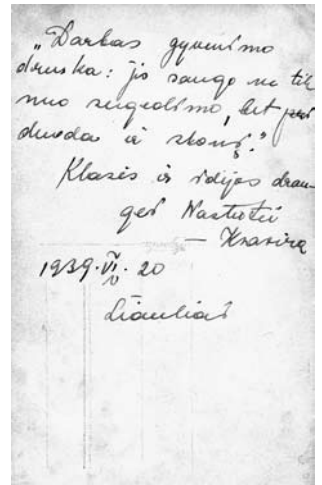 „Darbas gyvenimo
druska: jis saugo ne tik
nuo sugedimo, bet pri
duoda ir skonį."
Klasės ir idėjos drau-
gei Nastutei
—
1939.VI.20
Šiauliai